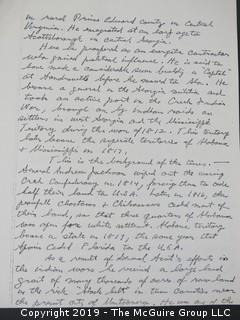 in rural Prince Edward County in Central
Virginia. He migrated at an early age to
Scottsborough in central Georgia.
Here he prospered as an energetic Contractor
who gained political influence. He is said to
have made a considerable sum
at
became a general in the Georgia militia and
took an active part in the Creek Indian
War, brought on by Indian raids on
settlers in west Georgia and the Mississippi
Territory during the war of 1812. This territory
later became the separate territories of Alabama
& Mississippi in 1817.
This is the background of the times. —
General Andrew Jackson wiped out the warring
Creek Confederacy in 1814, forcing them to cede
half their land to U.S.A. Later, in 1816, the
peaceful Choctaws & Chickasaws ceded most of
their land, so that three quarters of Alabama
was open for white settlement. Alabama Territory
became a state in 1819, the same year that
Spain Ceded Florida to the U.S.A.
As a result of General Scott's efforts in
the indian wars he received a large land
grant of many thousands of acres of raw land
in the rich "black belt" in then Counties near
the present city of Montgomery. He was one of the
COPYRIGHT 2019 - The McGuire Group LLC